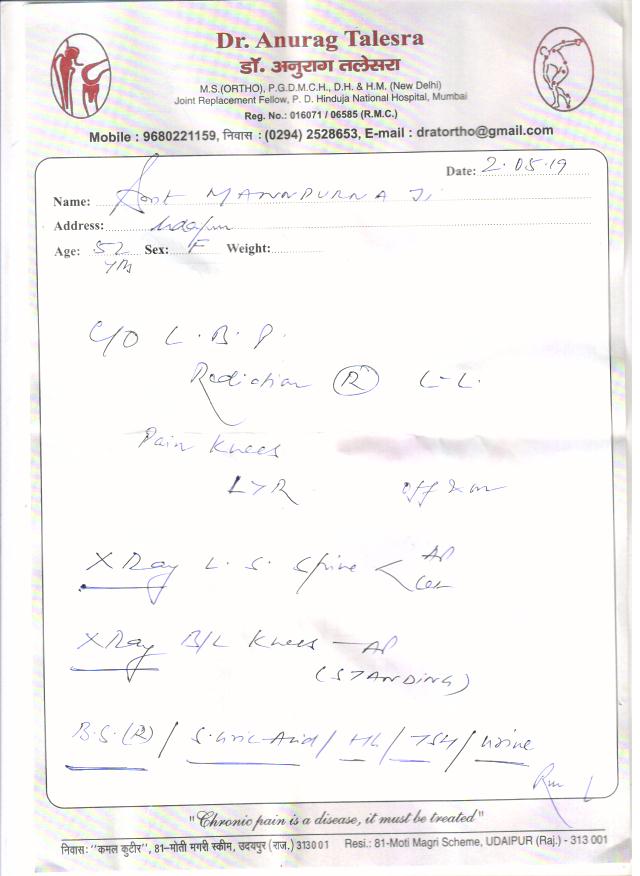 Dr. Anurag Talesra
डॉ. अनुराग तलेसरा
M.S.(ORTHO), P.G.D.M.C.H., D.H. & H.M. (New Delhi)
Joint Replacement Fellow, P. D. Hinduja National Hospital, Mumbai
Reg. No.: 016071 / 06585 (R.M.C.)
Mobile : 9680221159, निवास : (0294) 2528653, E-mail : dratortho@gmail.com
Date: 2.05.19
Name: Smt MANNPURNA Ji
Address: Udaipur
Age: 52 yrs Sex: F Weight:
C/O L.B.P.
Radiation (R) L-L.
Pain Knees
L>R
X Ray L.S. Spine < AP
X Ray B/L Knees — AP
(STANDING)
B.S.(R) / S. Uric Acid / Hb / TSH / Urine
"Chronic pain is a disease, it must be treated"
निवास: "कमल कुटीर", 81-मोती मगरी स्कीम, उदयपुर (राज.) 313001 Resi.: 81-Moti Magri Scheme, UDAIPUR (Raj.) - 313 001